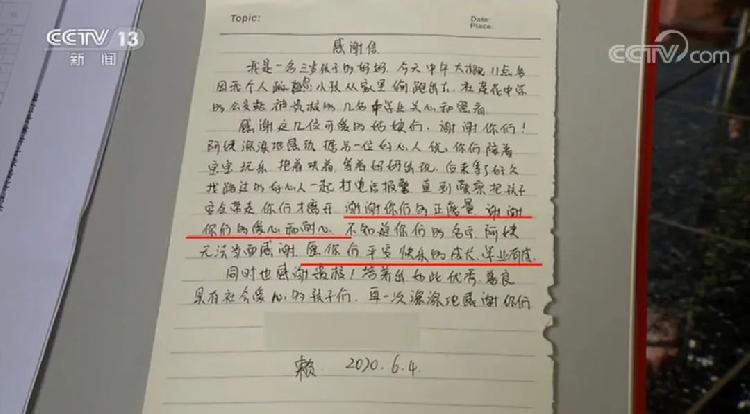 CCTV 13
新闻
CCTV.com
Topic:
Date:
Place:
感谢信
我是一名三岁孩子的妈妈,今天中午大概11点多
因我个人疏忽小孩从家里偷跑出去,在
的公交站被贵校的几名中学生关心和照看
感谢这几位可爱的姑娘们,谢谢你们!
阿姨深深地感动 据另一位好心人说,你们陪着
宝宝玩乐 抱着哄着 等着妈妈出现,后来等了好久
找路过的好心人一起打电话报警 直到警察把孩子
安全带走 你们才离开 谢谢你们的正能量 谢谢
你们的爱心和耐心 不知道你们的名字 阿姨
无法当面感谢 愿你们平安快乐的成长,学业有成
同时也感谢贵校!培养出如此优秀,善良
具有社会爱心的孩子们,再一次深深地感谢你们
赖 2020.6.4